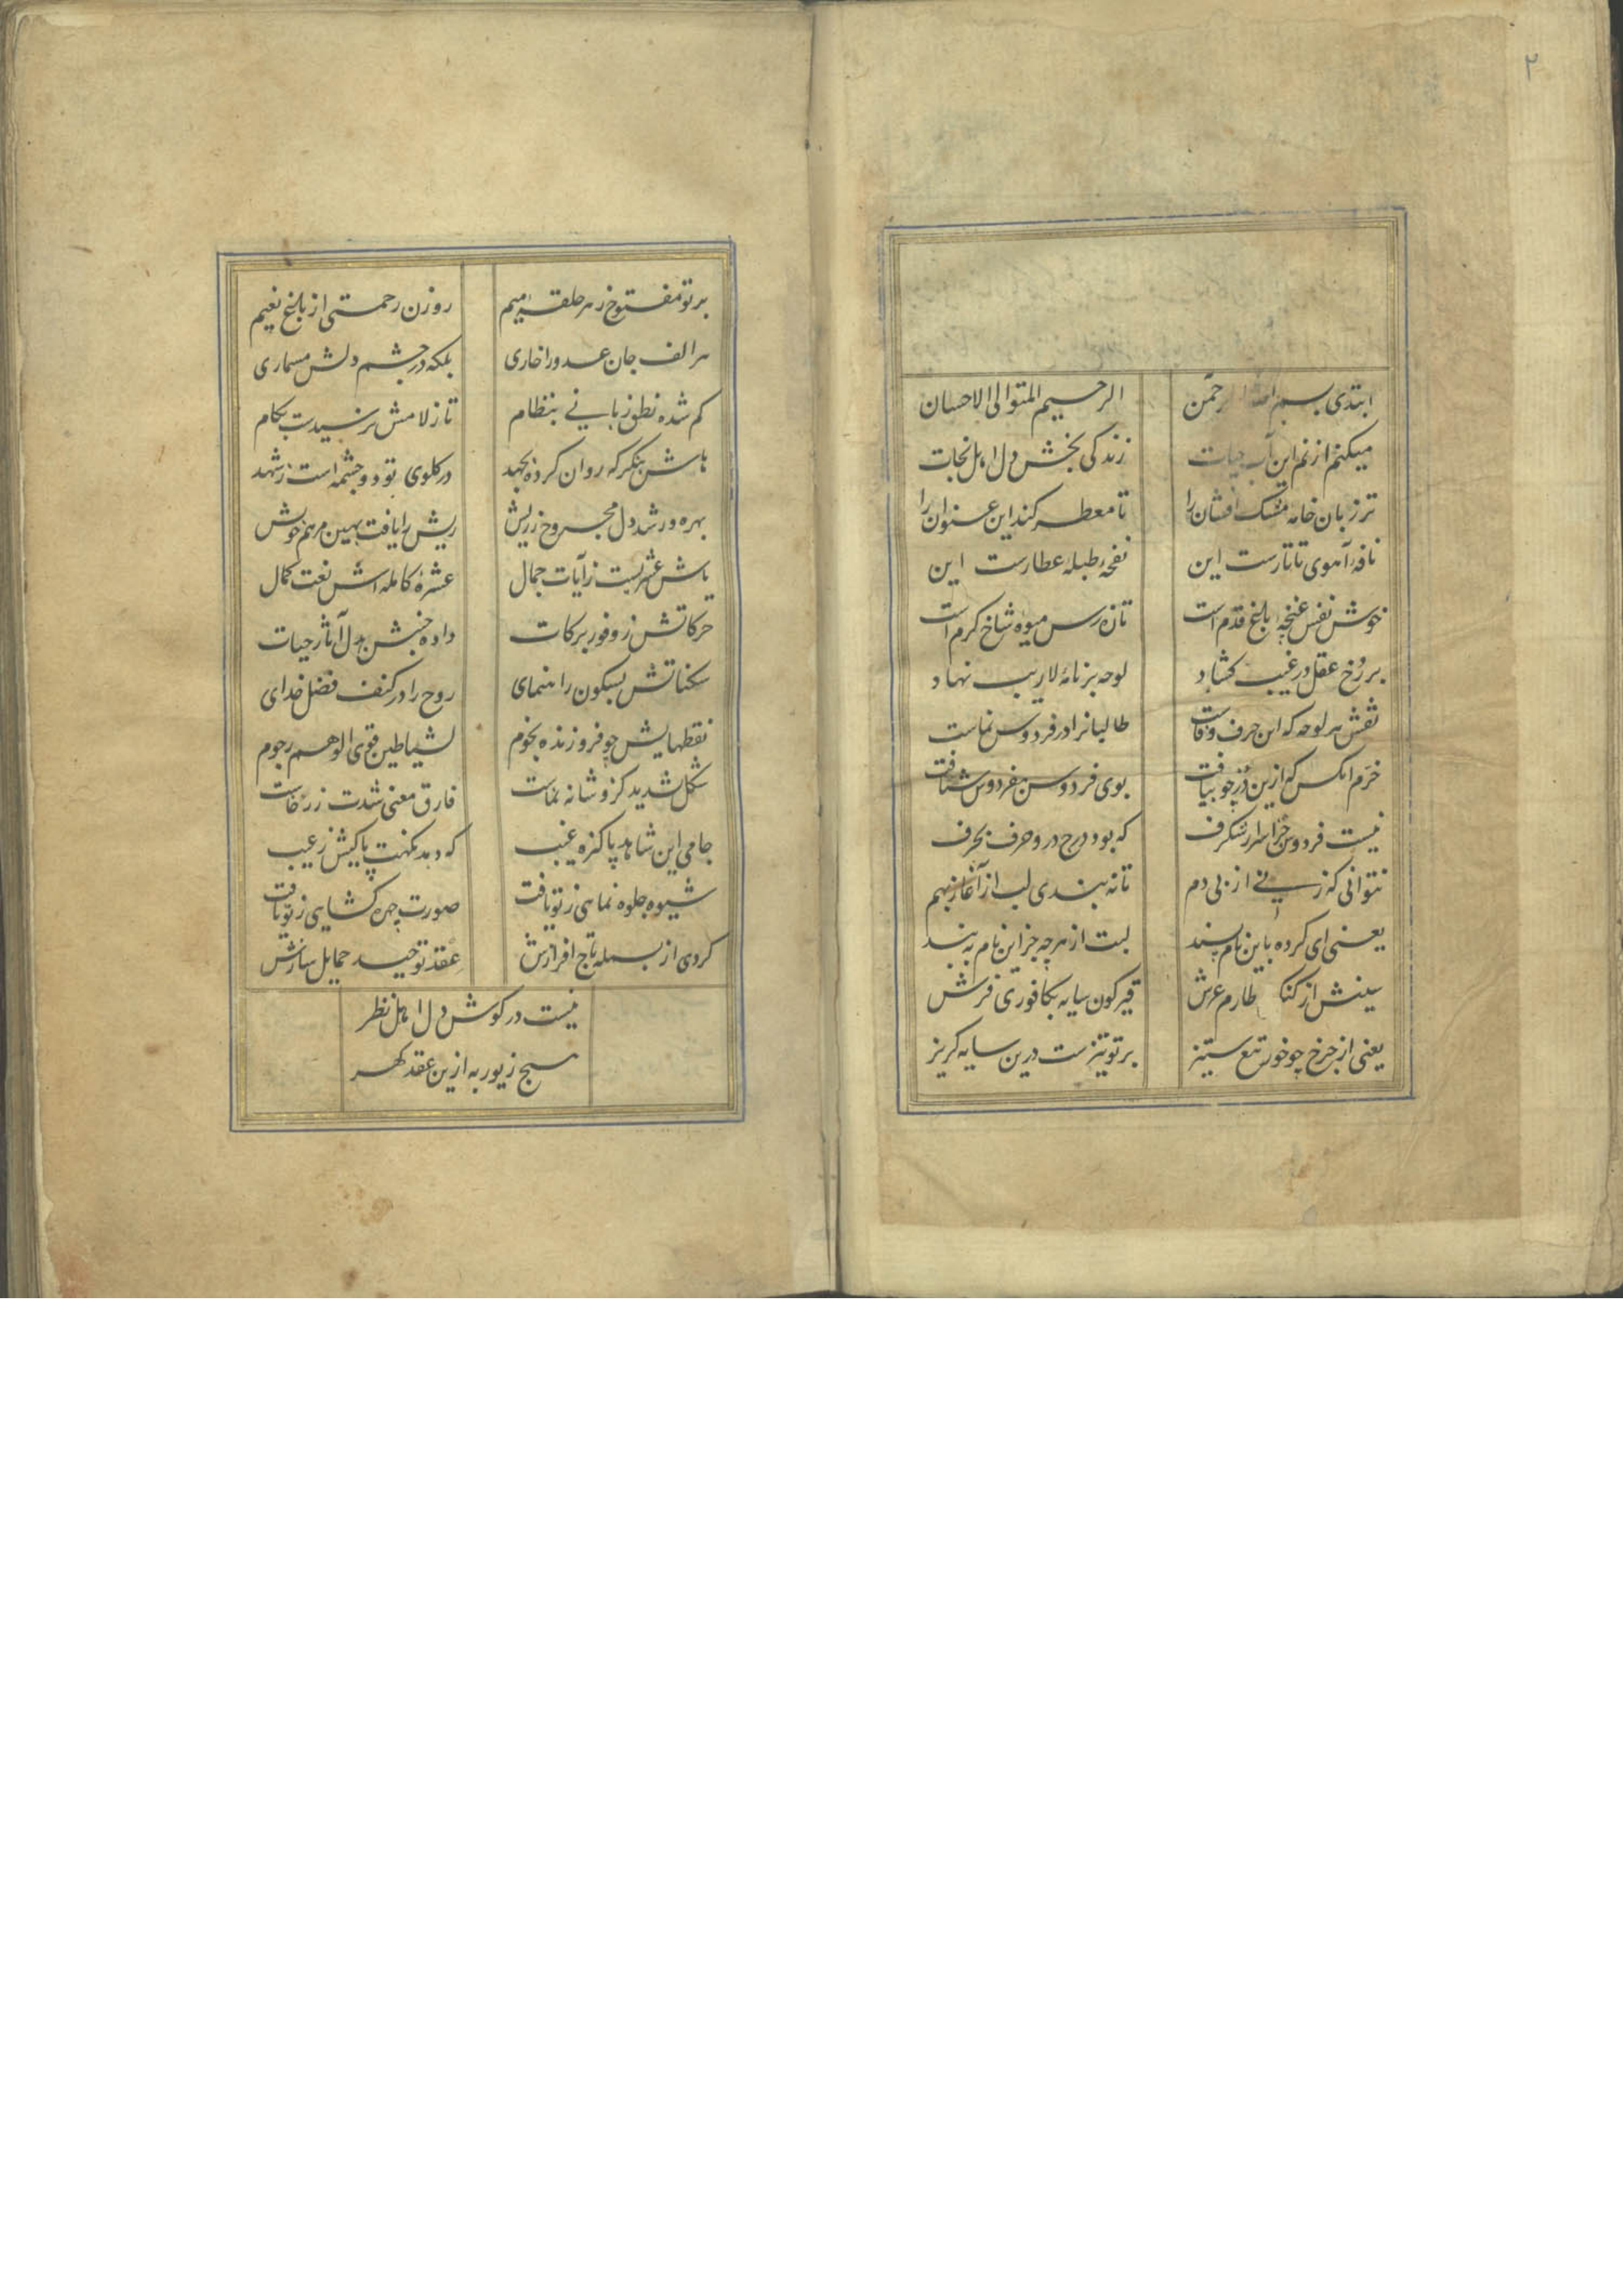 ۲
ابتدی بسم الله الرحمن الرحیم المتوالی الاحسان
میکنم از نم این آب حیات زندگی بخش دل اهل نجات
تر زبان خامه مشک افشان را تا معطر کند این عنوان را
نافه آهوی تاتارست این نفحه طبله عطارست این
خوش نفس غنچه باغ قدم است تازه رس میوه شاخ کرم است
بر رخ عقل در غیب کشاد لوحه بر نامه لاریب نهاد
نقش هر لوحه که این حرف وفاست طالبانرا در فردوس نماست
خرم انکس که ازین در چو بیافت بوی فردوس بفردوس شتافت
نیست فردوس جز اسرار شکرف که بود درج درو حرف بحرف
نتوانی که زنی از بی دم تا نه بندی لب از آغاز بهم
یعنی ای کرده باین نام پسند لبت از هر چه جز این نام به بند
سینش از کنکر طارم عرش قیرکون سایه بکافوری فرش
یعنی از چرخ چو خور تیغ ستیز بر تو تیزست درین سایه کریز
بر تو مفتوح ز هر حلقه میم روزن رحمتی از باغ نعیم
هر الف جان عدو را خاری بلکه در چشم دلش مسماری
کم شده نطق زبانی بنظام تا ز لامش نرسیدست بکام
هاش بنکر که روان کرده بجهد در کلوی تو دو چشمه است ز شهد
بهره ور شد دل مجروح زریش ریش را یافت بهین مرهم خویش
یاش عشریست ز آیات جمال عشره کامله اش نعت کمال
حرکاتش ز وفور برکات داده جنبش بدل آثار حیات
سکناتش بسکون راهنمای روح را در کنف فضل خدای
نقطهایش چو فروزنده نجوم لشیاطین قوی الوهم رجوم
شکل شدید کزو شانه نماست فارق معنی شدت ز رخاست
جامی این شاهد پاکزه غیب که دمد نکهت پاکیش ز عیب
شیوه جلوه نمایی ز تو یافت صورت چهره کشایی ز تو یافت
کردی از بسمله تاج افرازش عقد توحید حمایل سازش
نیست در کوش دل اهل نظر
هیچ زیور به ازین عقد کهر